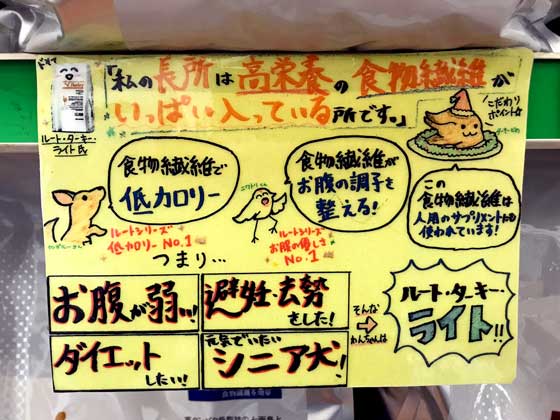 ドヤァ
「私の長所は高栄養の食物繊維が
いっぱい入っている所です。」
ルート・ターキー・
ライト氏
こだわり
ポイント☆
食物繊維で
低カロリー
ルートシリーズ
低カロリー No.1
食物繊維が
お腹の調子を
整える!
ルートシリーズ
お腹の優しさ
No.1
この
食物繊維は
人用のサプリメントにも
使われています!
つまり...
お腹が弱い!
避妊・去勢
をした!
ダイエット
したい!
元気でいたい
シニア犬!
そんな
わんちゃんは
ルート・ターキー・
ライト!!